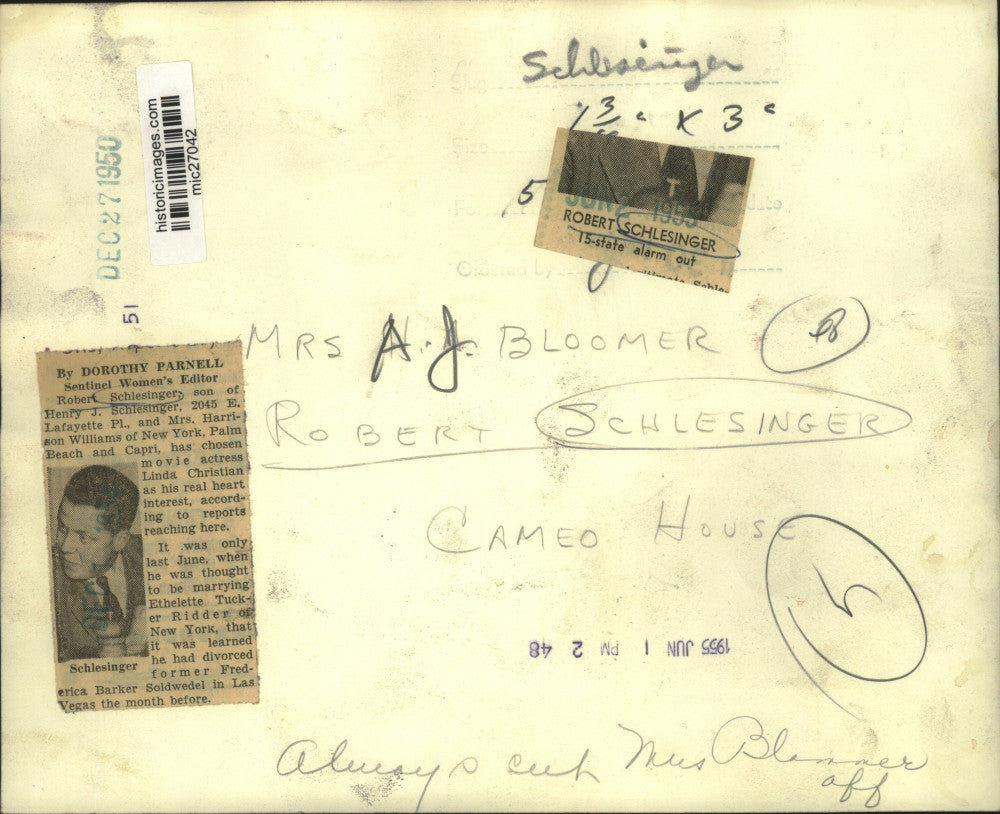 Schlesinger
1 3/ " x 3 "
Size
5
JUN 2 1955
ROBERT SCHLESINGER
15-state alarm out
Ordered by
historicimages.com
mic27042
DEC 27 1950
51
MRS A. J. BLOOMER
ROBERT SCHLESINGER
CAMEO HOUSE
5
1955 JUN 1 PM 2 48
Always cut Mrs Bloomer
off
By DOROTHY PARNELL
Sentinel Women's Editor
Robert Schlesinger, son of
Henry J. Schlesinger, 2045 E.
Lafayette Pl., and Mrs. Harri-
son Williams of New York, Palm
Beach and Capri, has chosen
movie actress
Linda Christian
as his real heart
interest, accord-
ing to reports
reaching here.
It was only
last June, when
he was thought
to be marrying
Ethelette Tuck-
er Ridder of
New York, that
it was learned
he had divorced
former Fred-
erica Barker Soldwedel in Las
Vegas the month before.
Schlesinger